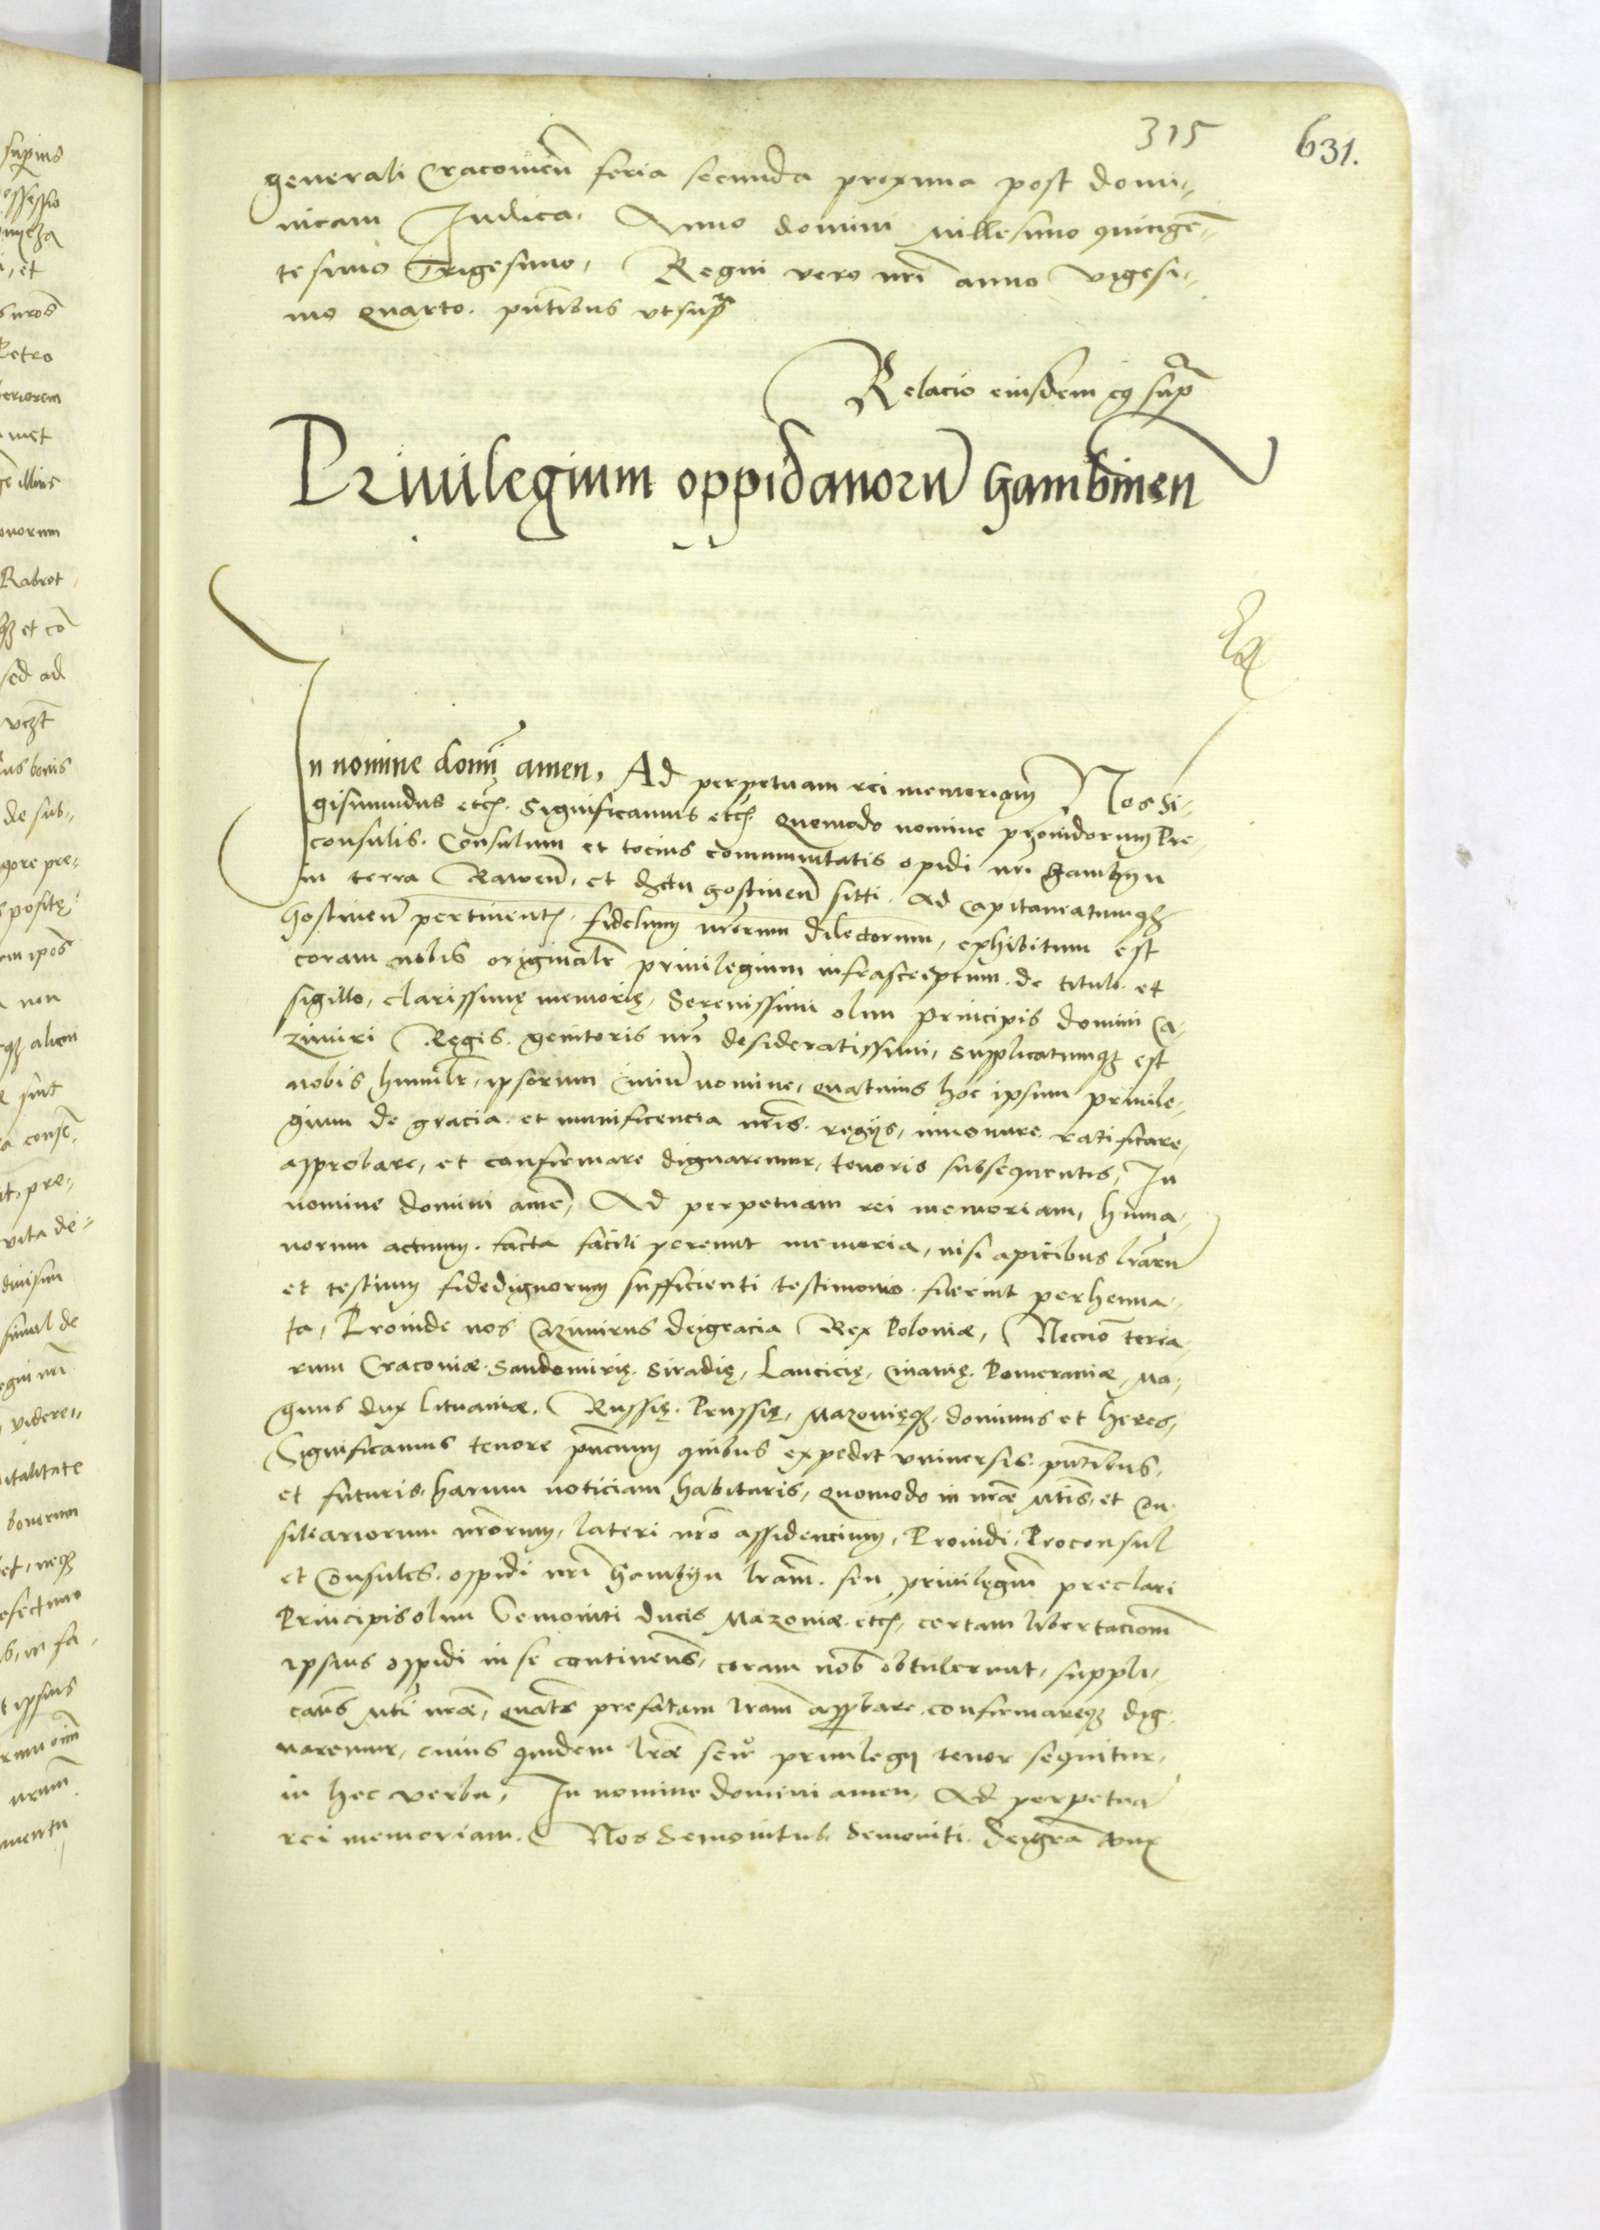 315 631.
generali Cracovien̄ feria secunda proxima post domi-
nicam Judica. Anno domini millesimo quingen̄-
tesimo Trigesimo, Regni vero nr̄i anno vigesi-
mo quarto. pn̄tibus vt supra
Relacio eiusdem que supra
Priuilegium oppidanorū hambinen̄
In nomine domī amen, Ad perpetuam rei memoriam Nos Si-
gismundus etc̄. Significamus etc̄. quomodo nomine prouidorum Pro-
consulis. Consulum et tocius communitatis opidi nr̄i hambyn
in terra Rawen̄, et dc̄tu gostinen̄ sitti. ad capitaneatumq̄
hostinen̄ pertinent̄. fidelium nr̄orum dilectorum, exhibitum est
coram nobis originale priuilegium infrascriptum de titulo et
sigillo, clarissimę memorię, Serenissimi olim principis domini Ca-
zimiri Regis. genitoris nr̄i desideratissimi, supplicatumq̄ est
nobis humilr̄, ipsorum om̄iū nomine, quatinus hoc ipsum priuile-
gium de gracia. et munificencia nr̄is. regijs, innouare. ratificare,
approbare, et confirmare dignaremur, tenoris subsequentis, In
nomine domini amē, Ad perpetuam rei memoriam, huma-
norum actuum. facta facili pereunt memoria, nisi apicibus lr̄arū
et testium fidedignorum sufficienti testimonio. fuerint perhenna-
ta, Proinde nos Cazimirus deigracia Rex Poloniæ, Necnō terra-
rum Cracoviæ. Sandomirię. Siradię, Lancicię, Cuiauię. Pomeraniæ, Ma-
gnus dux Lituaniæ. Russię. Prussię, Mazouięq̄. dominus et heres,
Significamus tenore pn̄cium quibus expedit vniuersis. pn̄tibus,
et futuris. harum noticiam habituris, quomodo in nr̄æ Mtis, et con-
siliariorum nr̄orum, lateri nr̄o assidencium, Prouidi. Proconsul
et Consules. oppidi nr̄i hambyn lr̄am. seu priuilegium preclari
Principis olim Semouiti ducis Mazouiæ. etc̄, certam libertacionem
ipsius oppidi in se continen̄s, coram nob̄ obtulerunt, suppli-
can̄s Mti nr̄æ, quat̄s prefatam lr̄am approbare confirmareq̄ dig-
naremur, cuius quidem lr̄æ seu priuilegij tenor sequitur,
in hec verba, In nomine domini amen, Ad perpetuā
rei memoriam. Nos Semouitus Semouiti. deigrā dux